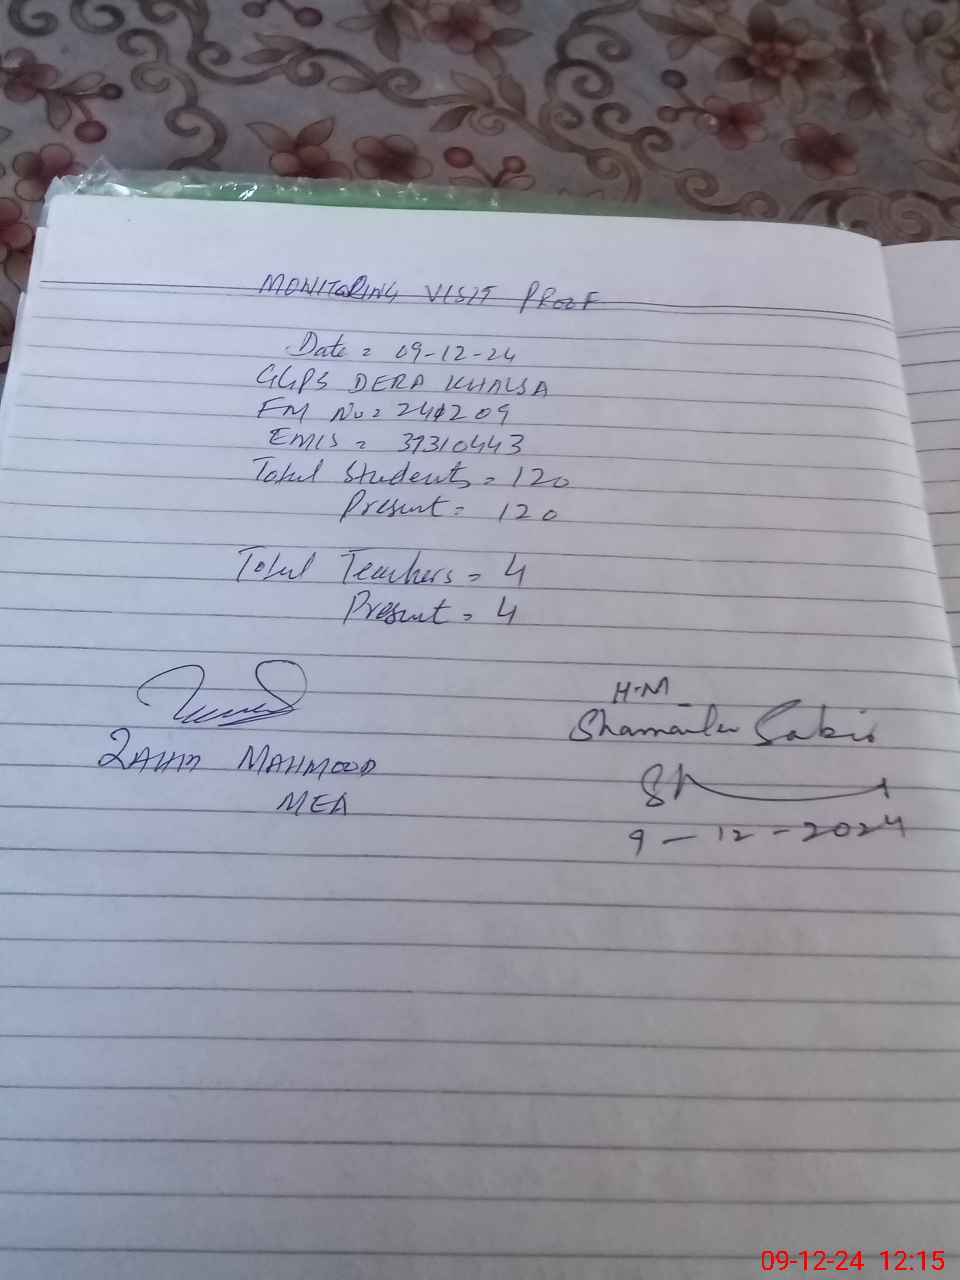 MONITORING VISIT PROOF
Date = 09-12-24
GGPS DERA KHALSA
FM No = 241209
EMIS = 37310443
Total Students = 120
Present = 120
Total Teachers = 4
Present = 4
H.M
Shamaila Sabir
MAHMOOD
MEA
9-12-2024
09-12-24 12:15